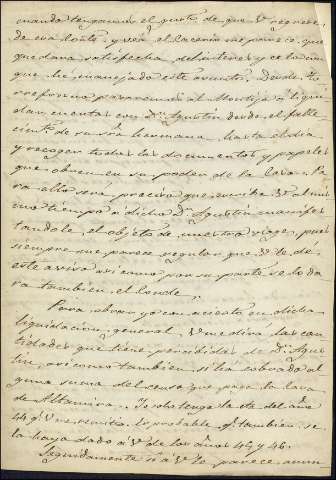 cuando tengamos el gusto de que V. regrese
de esa Corte, y vea el Cacerio me parece que
quedara satisfecha del interes y celo con
que he manejado este asunto. Desde
pasaremos al à liqui
dar cuentas con Dn. Agustin desde el falle
cimto. de su Sra. hermana, hasta el dia
y recoger todos los documentos y papeles
que obren en su poder de la Casa. Pa
ra ello será preciso que escriba V. al mis
mo tiempo à dicho Dn. Agustin manifes
tandole el objeto de nuestro viage, pues
siempre me parece regular que V. le dé
este aviso asi como por su parte se lo da
ra tambien el Conde.
Para obrar yo con acierto en dicha
liquidacion general, V. me dira las can
tidades que tiene percibidas de Dn. Agus
tin, asi como tambien si ha cobrado al
guna suma del censo que paga la Casa
de Altamira. Yo solo tengo la cta. del año
44 qe. V. me remitio. Es probable qe. tambien se
la haya dado à V. de los años 45 y 46.
Seguidamente si à V. lo parece, aun